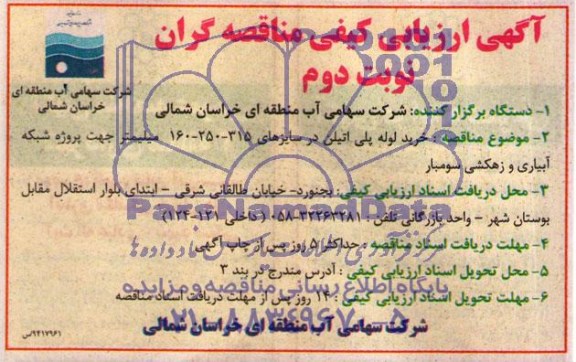 آگهی ارزیابی کیفی مناقصه گران
نوبت دوم
شرکت سهامی آب منطقه ای
خراسان شمالی
۱- دستگاه برگزار کننده: شرکت سهامی آب منطقه ای خراسان شمالی
۲- موضوع مناقصه : خرید لوله پلی اتیلن در سایزهای ۳۱۵-۲۵۰-۱۶۰ میلیمتر جهت پروژه شبکه
آبیاری و زهکشی سومبار
۳- محل دریافت اسناد ارزیابی کیفی: بجنورد- خیابان طالقانی شرقی - ابتدای بلوار استقلال مقابل
بوستان شهر - واحد بازرگانی تلفن : ۳۲۲۶۳۲۸۱-۰۵۸ (داخلی ۱۲۱-۱۲۴)
۴- مهلت دریافت اسناد مناقصه : حداکثر ۵ روز پس از چاپ آگهی
۵- محل تحویل اسناد ارزیابی کیفی : آدرس مندرج در بند ۳
۶- مهلت تحویل اسناد ارزیابی کیفی : ۱۴ روز پس از مهلت دریافت اسناد مناقصه
شرکت سهامی آب منطقه ای خراسان شمالی
۹۴۱۷۹۶۱/س
ParsNamadData
پایگاه اطلاع رسانی مناقصه و مزایده
۰۲۱-۸۸۳۴۹۶۷۰-۵